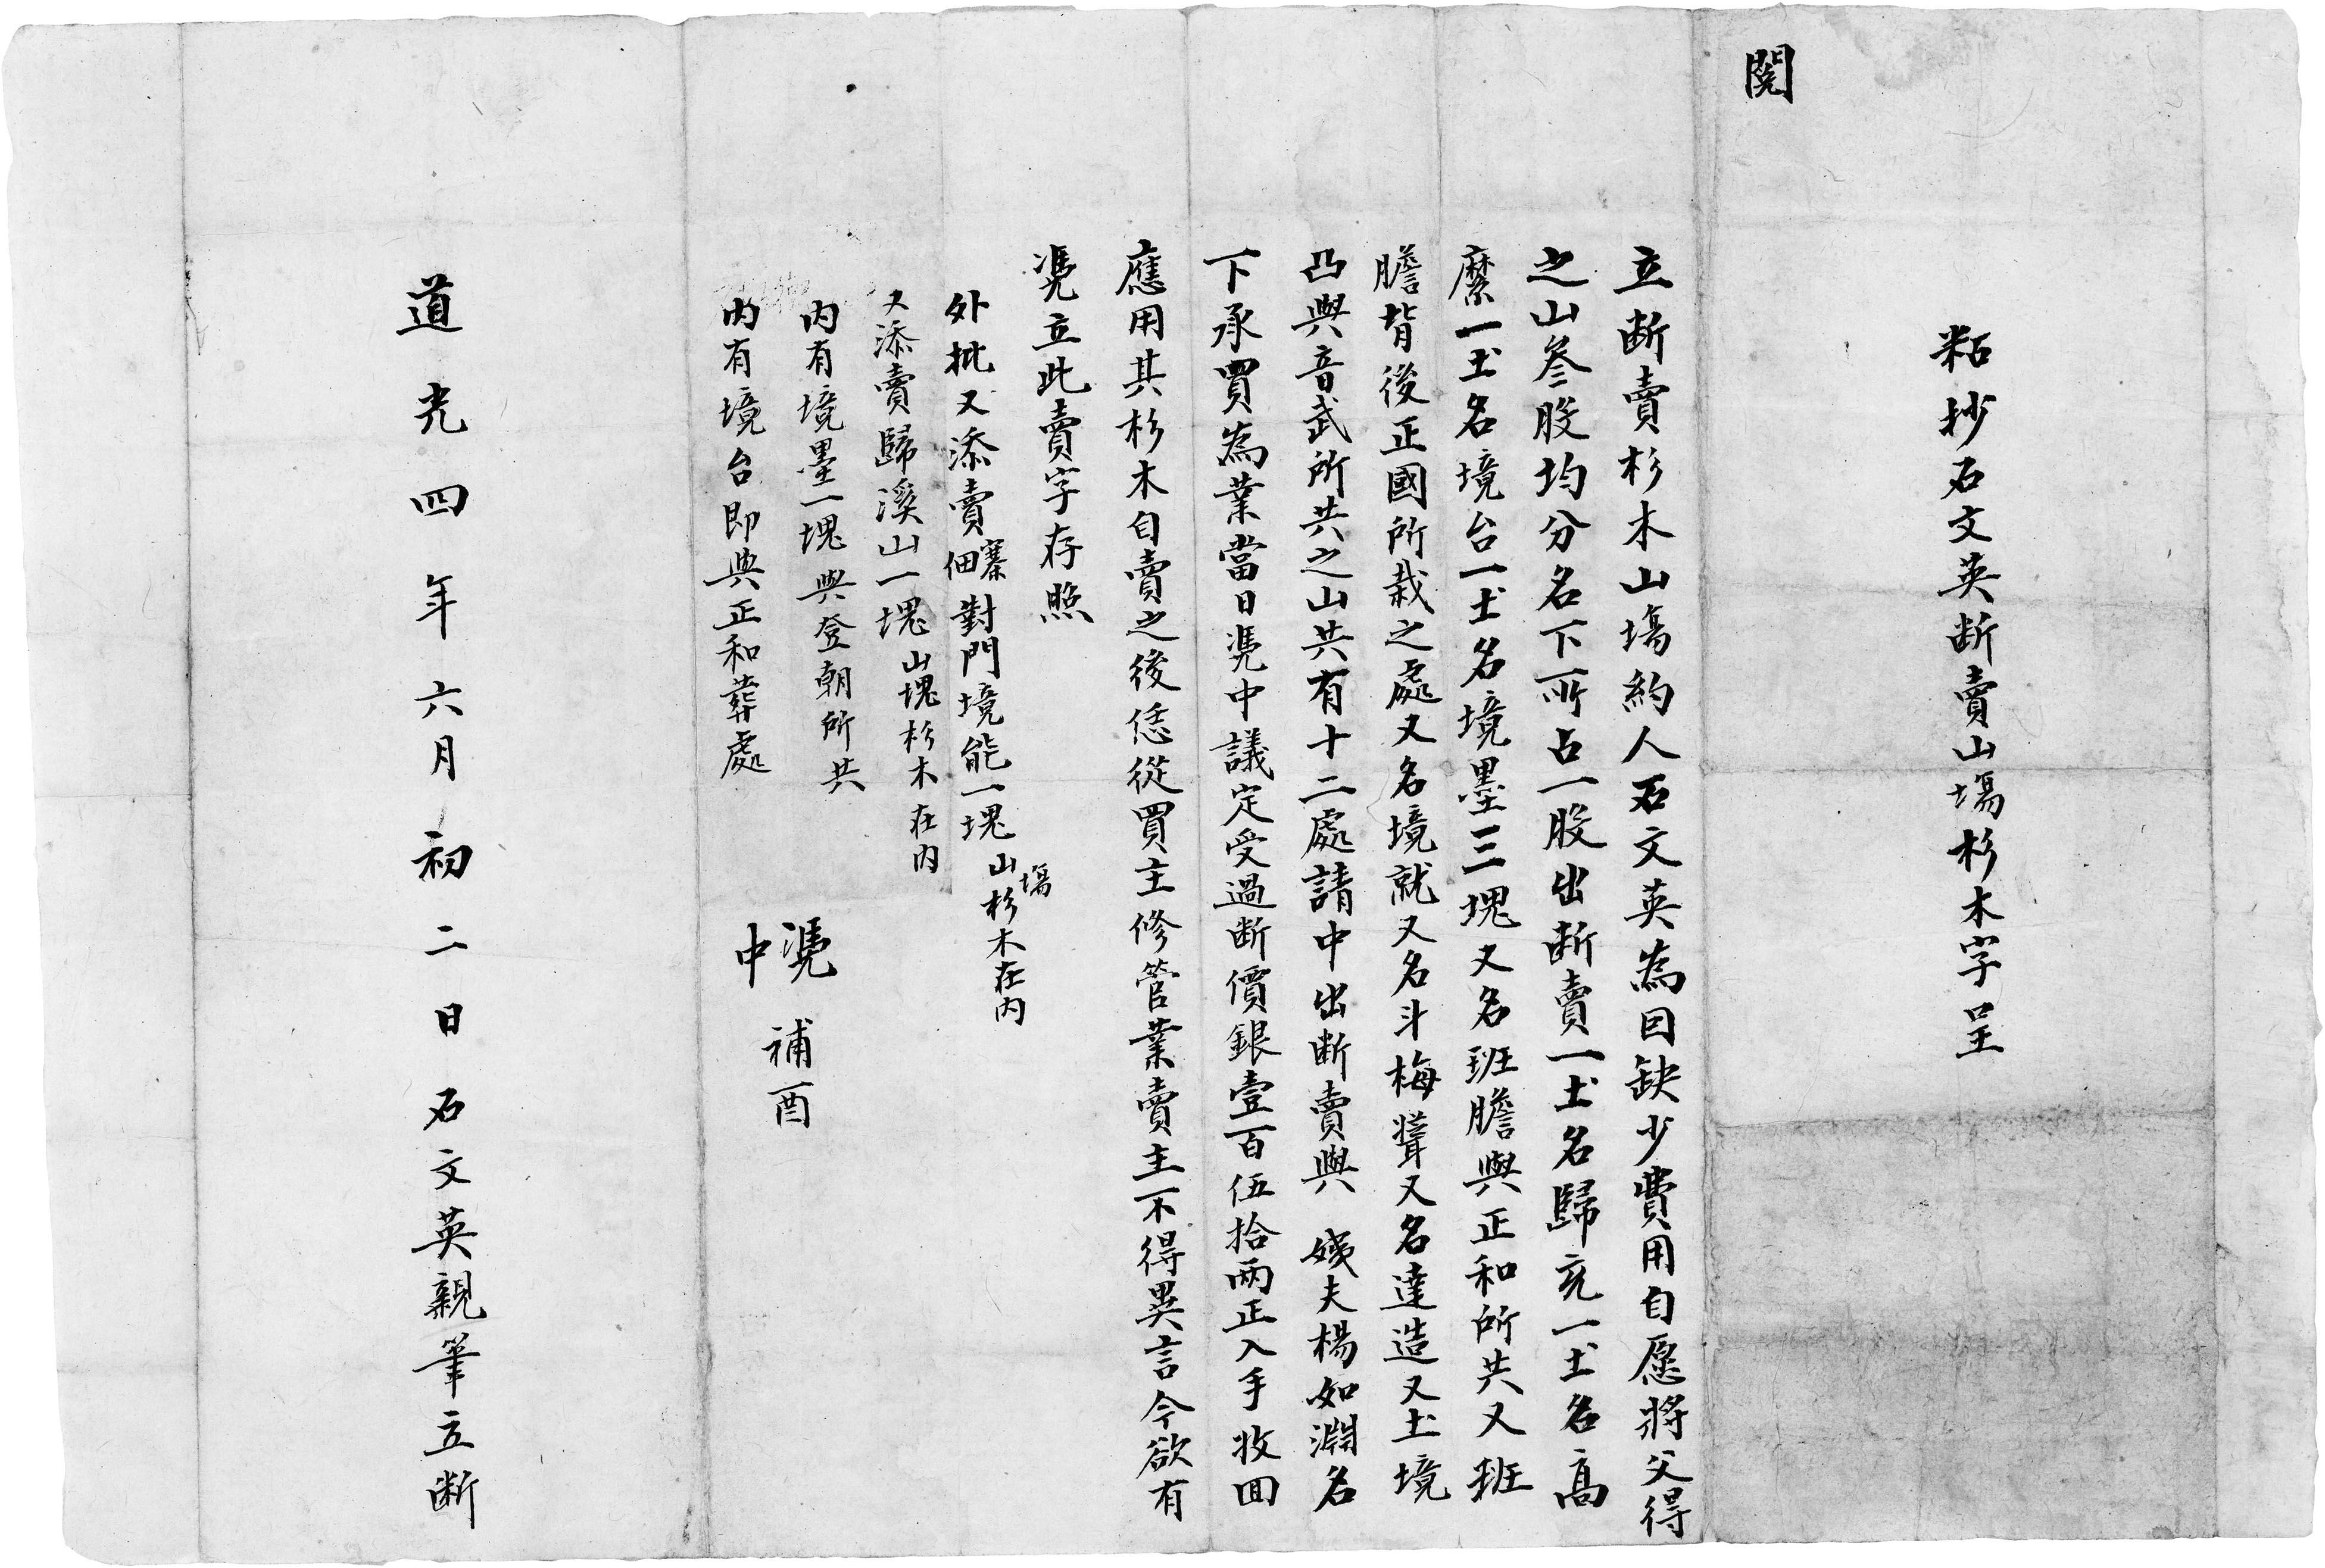 粘抄石文英断賣山塲杉木字呈
閱
立断賣杉木山塲約人石文英為因缺少費用自愿將父得
之山叄股均分名下所占一股出断賣一土名歸兖一土名高
縻一土名境台一土名境墨三塊又名班膽與正和所共又班
膽背後正國所栽之處又名境就又名斗梅聳又名達造又土境
凸與音武所共之山共有十二處請中出断賣與 姨夫楊如淵名
下承買為業當日凴中議定受過断價銀壹百伍拾两正入手收回
應用其杉木自賣之後恁從買主修管業賣主不得異言今欲有
凴立此賣字存照
外批又添賣寨佃對門境能一塊山塲杉木在内
又添賣歸溪山一塊山塊杉木在内
内有境墨一塊與登朝所共
内有境台即與正和葬處
凴中 補酉
道光四年六月初二日石文英親筆立断